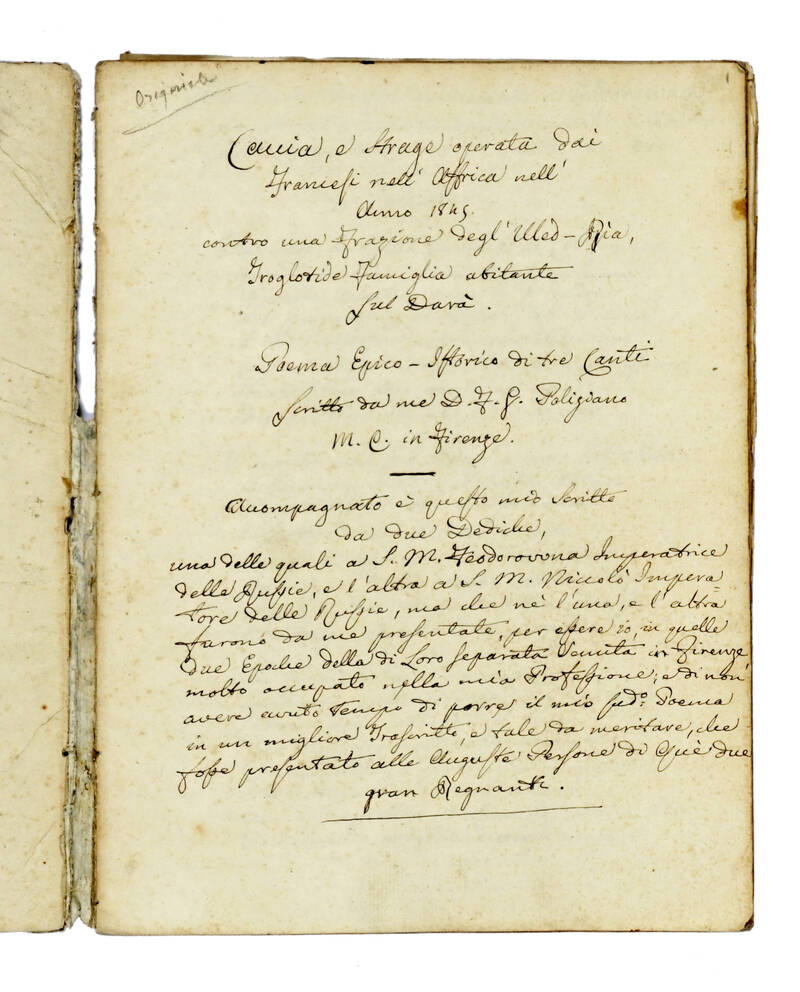 Originale
1
Caccia, e Strage operata dai
Francesi nell' Affrica nell'
Anno 1845.
contro una Frazione degl' Uled-Ria,
Troglotide Famiglia abitante
sul Darà.
Poema Epico-Istorico di tre Canti
Scritto da me D. F. G. Poligiano
M. C. in Firenze.
Acompagnato è questo mio Scritto
da due Dediche,
una delle quali a S. M. Feodorovona Imperatrice
delle Russie, e l'altra a S. M. Niccolò Impera=
tore delle Russie, ma che nè l'una, e l'altra
furono da me presentate, per essere io, in quelle
due Epoche della di Loro separata Venuta in Firenze
molto occupato nella mia Professione; e di non
avere avuto Tempo di porre il mio sudº. Poema
in un migliore Trascritto, e tale da meritare, che
fosse presentato alle Auguste Persone di Què due
gran Regnanti.